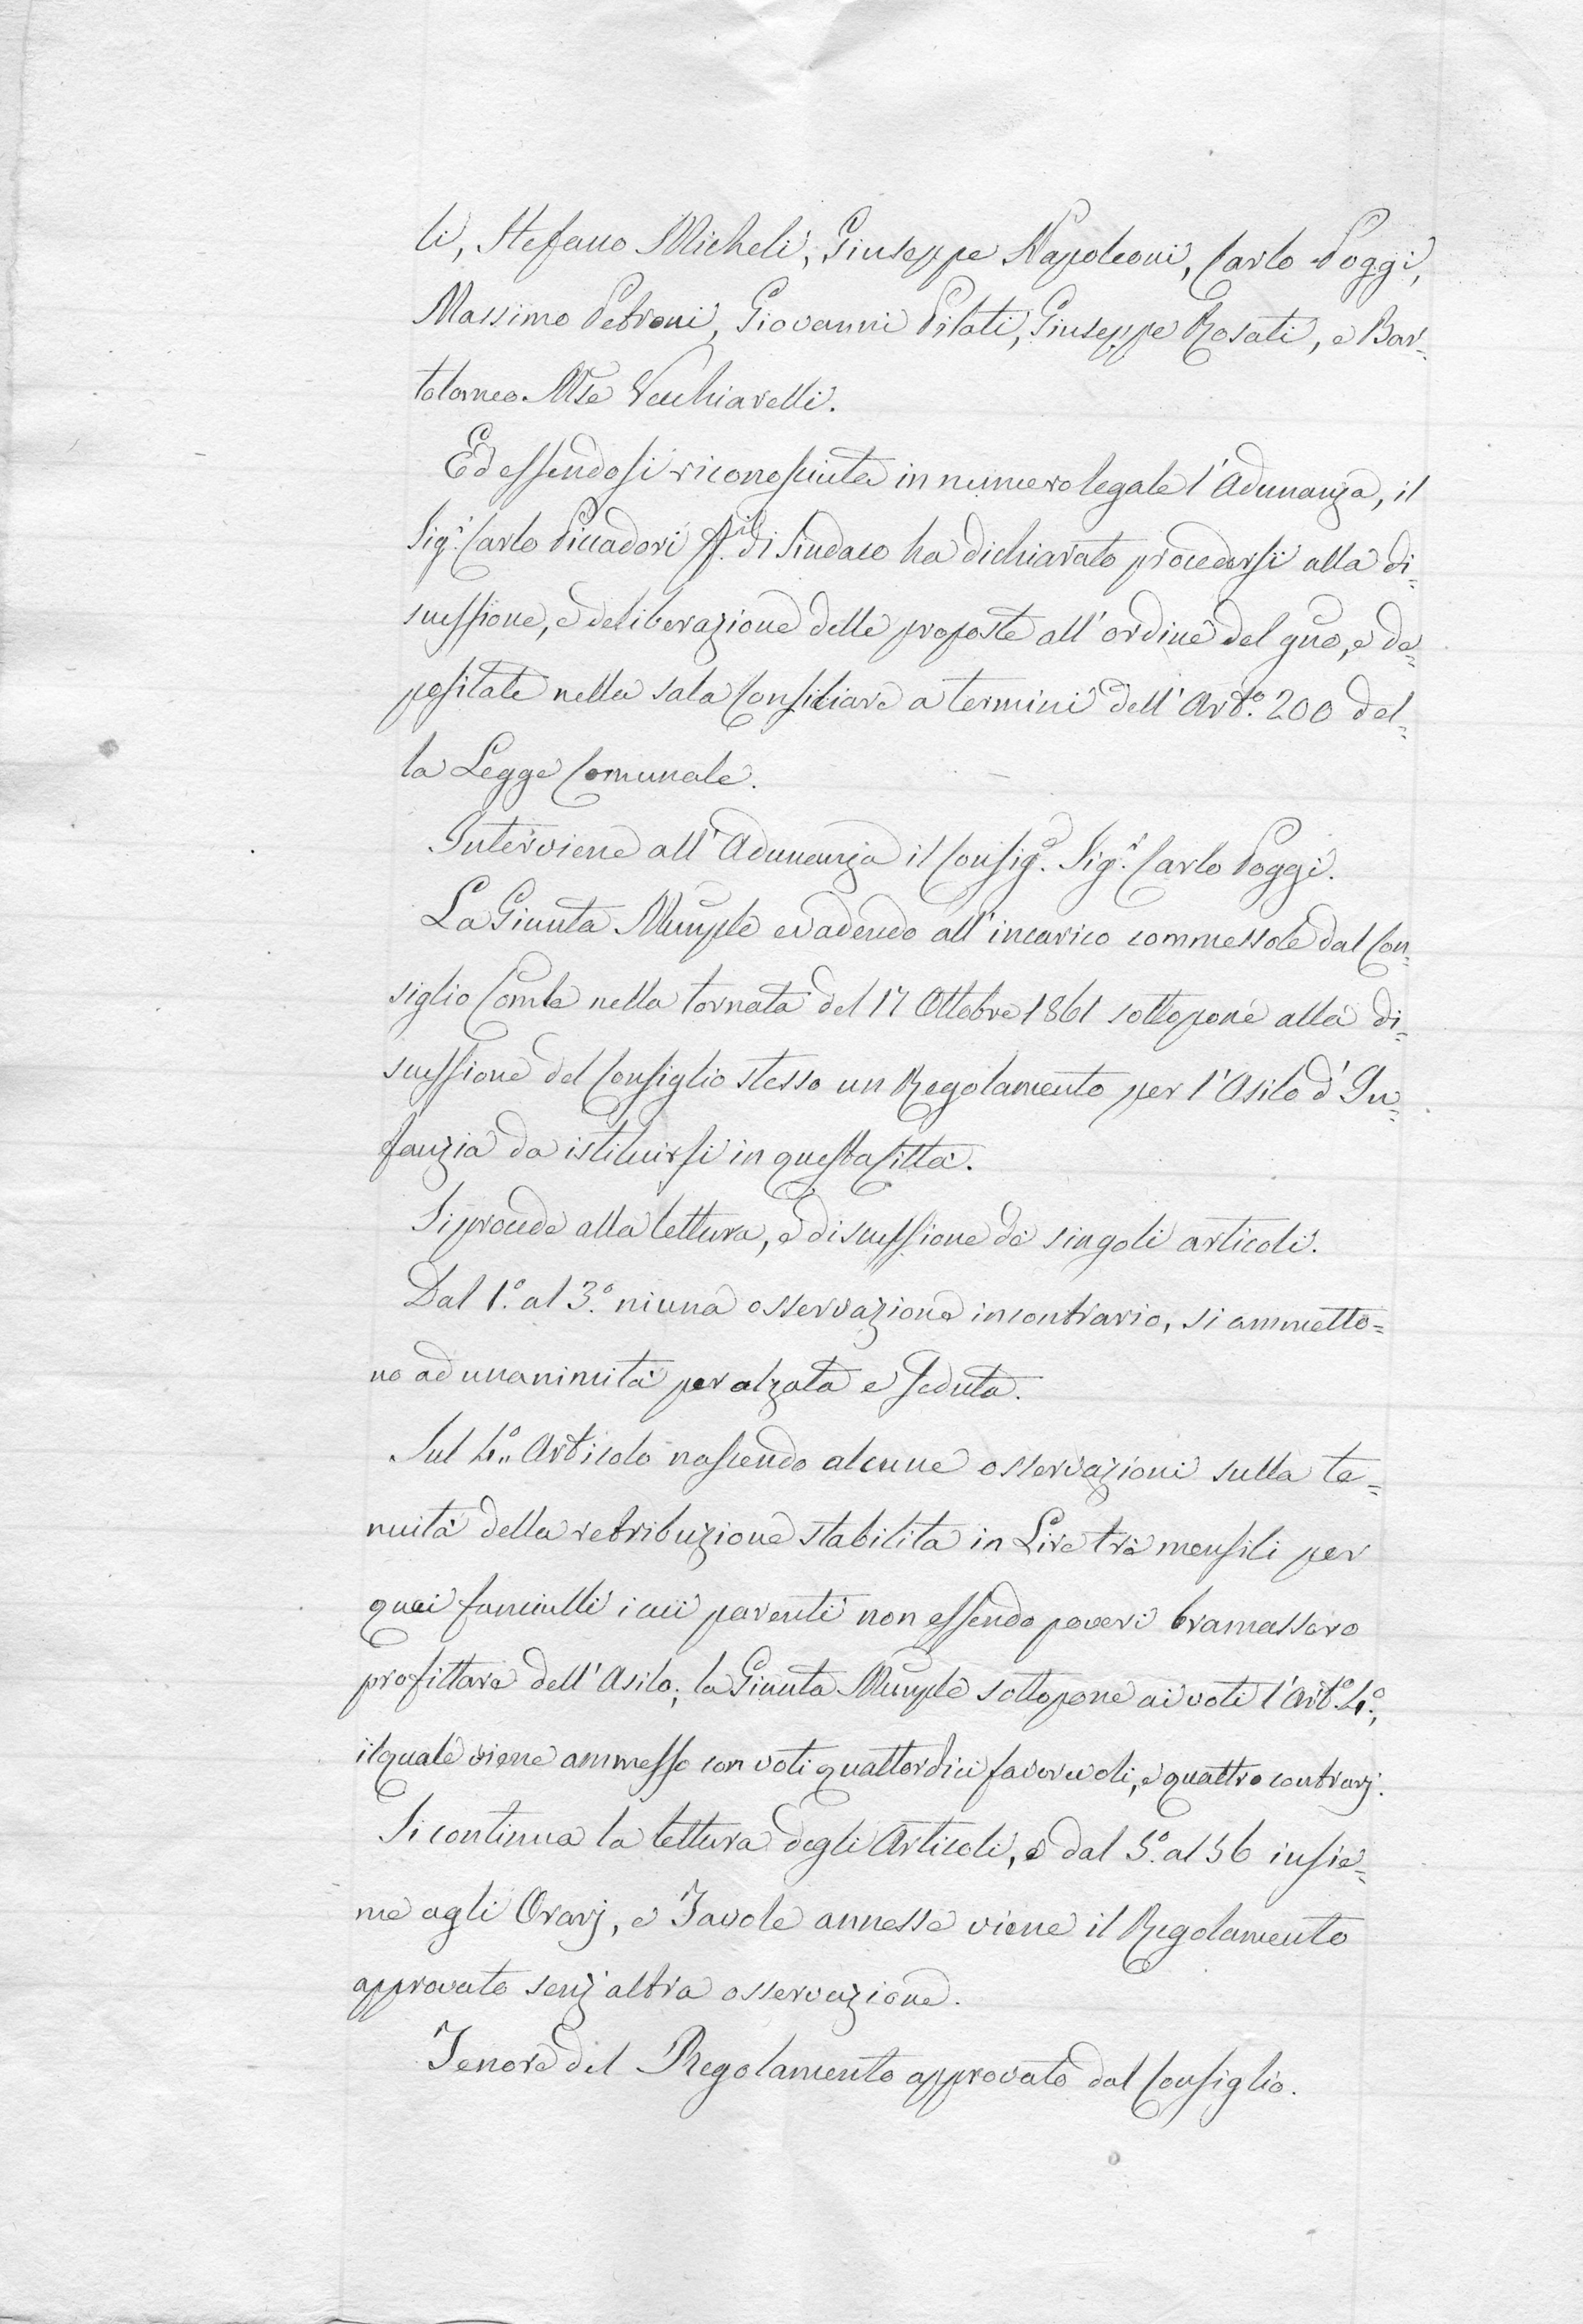 li, Stefano Micheli, Giuseppe Napoleoni, Carlo Poggi,
Massimo Petroni, Giovanni Pilati, Giuseppe Rosati, e Bar=
tolomeo Mse Vecchiarelli.
Ed essendosi riconosciuta in numero legale l'Adunanza, il
Sig.r Carlo Piccadori ff. di Sindaco ha dichiarato procedersi alla di=
scussione, e deliberazione delle proposte all'ordine del gno, e de=
positate nella sala Consiliare a termini dell'Art.o 200 del=
la Legge Comunale.
Interviene all'Adunanza il Consig.e Sig.r Carlo Poggi.
La Giunta Munple evadendo all'incarico commessole dal Con=
siglio Comle nella tornata del 17 Ottobre 1861 sottopone alla di=
scussione del Consiglio stesso un Regolamento per l'Asilo d'In=
fanzia da istituirsi in questa Città.
Si procede alla lettura, e discussione de singoli articoli.
Dal 1.o al 3.o niuna osservazione in contrario, si ammetto=
no ad unanimità per alzata e seduta.
Sul 4.o Articolo nascendo alcune osservazioni sulla te=
nuità della retribuzione stabilita in Lire tre mensili per
quei fanciulli i cui parenti non essendo poveri bramassero
profittare dell'Asilo, la Giunta Munple sottopone ai voti l'Art.o 4.o,
il quale viene ammesso con voti quattordici favorevoli, e quattro contrarj.
Si continua la lettura degli Articoli, e dal 5.o al 56 insie=
me agli Orarj, e Tavole annesse viene il Regolamento
approvato senz'altra osservazione.
Tenore del Regolamento approvato dal Consiglio.